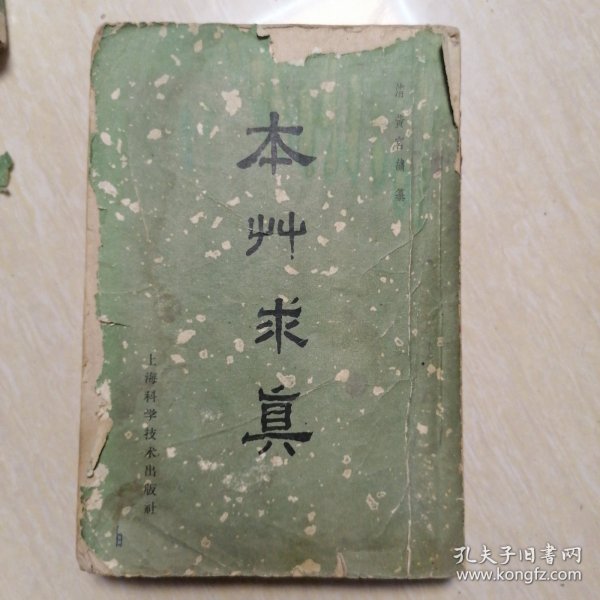 清 黄宫绣 纂
本艸求眞
上海科学技术出版社
孔夫子旧书网
www.kongfz.com